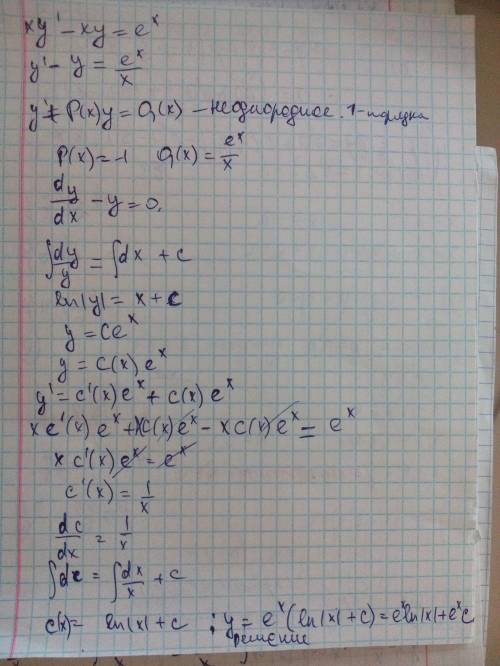 xy' − xy = e^x
y' − y = e^x/x
y' + P(x)y = Q(x) – неоднородное. 1-порядка
P(x) = −1 Q(x) = e^x/x
dy/dx − y = 0.
∫dy/y = ∫dx + c
ln|y| = x + c
y = Ce^x
y = C(x) e^x
y' = c'(x) e^x + c(x) e^x
x c'(x) e^x + xc(x) e^x − xc(x) e^x = e^x
x c'(x) e^x = e^x
c'(x) = 1/x
dc/dx = 1/x
∫dc = ∫dx/x + c
c(x) = ln|x| + c ; y = e^x(ln|x| + c) = e^x ln|x| + e^x c
решение